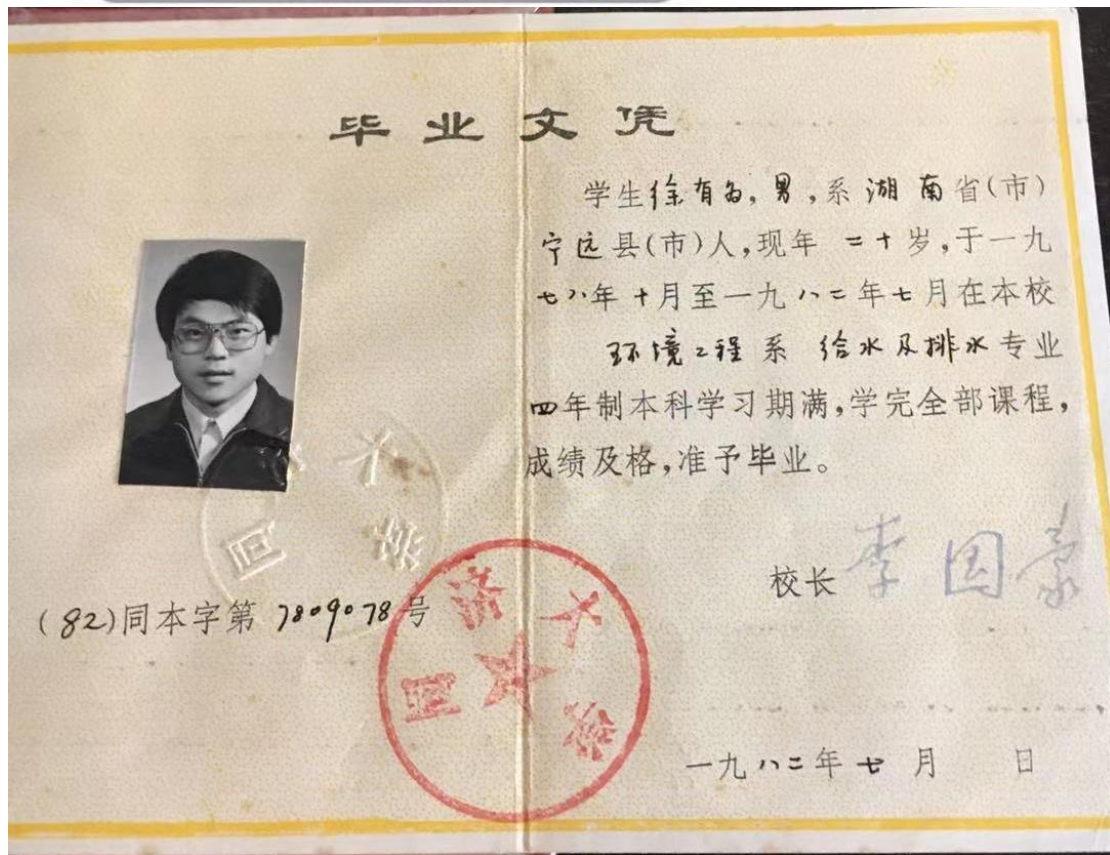 毕业文凭
学生徐有为,男,系湖南省(市)
宁远县(市)人,现年 二十岁,于一九
七八年十月至一九八二年七月在本校
环境工程系 给水及排水专业
四年制本科学习期满,学完全部课程,
成绩及格,准予毕业。
校长 李国豪
(82)同本字第 7809078 号
同济大学
同 大学
一九八二年七月 日